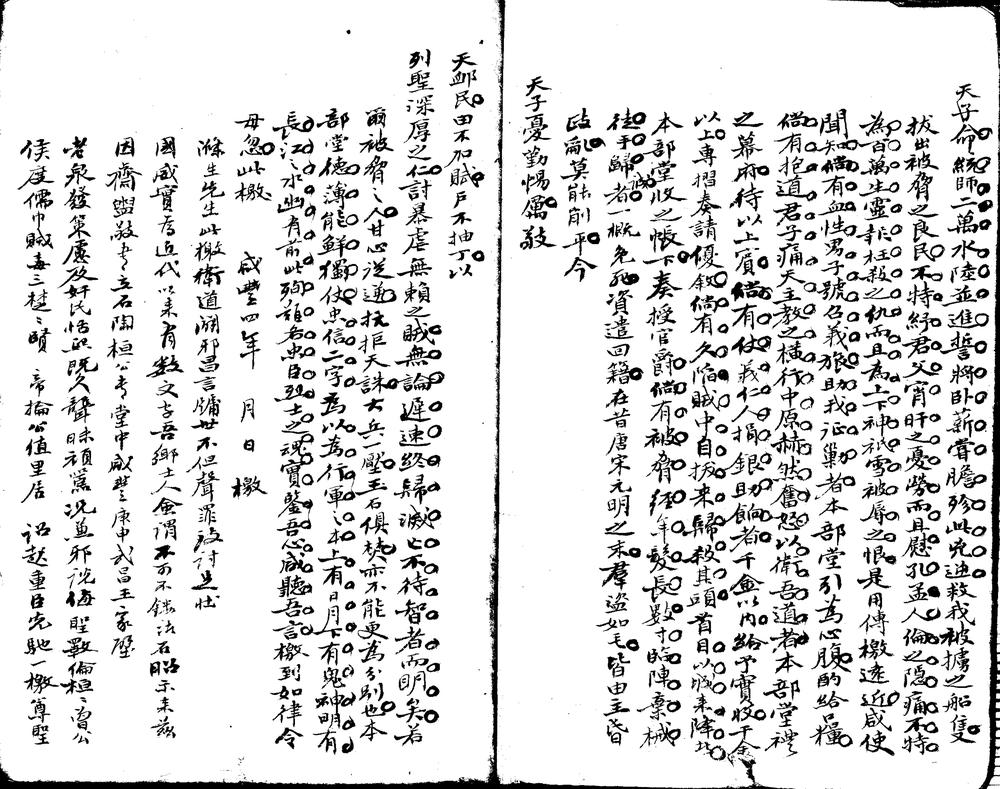 天子命統師二萬水陸並進誓將卧薪嘗膽殄此兇逆救我被擄之船隻
拔出被脅之良民不特紓君父宵旰之憂勞而且慰孔孟人倫之隱痛不特
為百萬生靈報枉殺之仇而且為上下神祇雪被辱之恨是用傳檄遠近咸使
聞知倘有血性男子號召義旅助我征勦者本部堂引為心腹酌給口糧
倘有抱道君子痛天主教之橫行中原赫然奮怒以衛吾道者本部堂禮
之幕府待以上賓倘有仗義仁人捐銀助餉者千金以內給予實收千金
以上專摺奏請優敘倘有久陷賊中自拔來歸殺其頭首目以城來降者
本部堂收之帳下奏授官爵倘有被脅經年髮長數寸臨陣棄械
徒手歸誠者一概免死資遣回籍在昔唐宋元明之末羣盜如毛皆由主昏
政亂莫能削平今
天子憂勤惕厲敬
天卹民田不加賦戶不抽丁以
列聖深厚之仁討暴虐無賴之賊無論遲速終歸滅亡不待智者而明矣若
爾被脅之人甘心從逆抗拒天誅大兵一壓玉石俱焚亦不能更為分別也本
部堂德薄能鮮獨仗忠信二字為以為行軍之本上有日月下有鬼神明有
長江之水幽有前此殉難各忠臣烈士之魂實鑒吾心咸聽吾言檄到如律令
毋忽此檄 咸豐四年 月 日 檄
滌生先生此檄衛道闢邪昌言牖世不但聲罪致討足壯
國威實為近代以來有數文字吾鄉士人僉謂不可不鐫諸石昭示來茲
因齊 敬書立石陶桓公書堂中咸豐庚申武昌王家璧
老泉發策 奸民恬熙既久聾昧頑罵況兼邪說侮聖斁倫桓桓曾公
侯度儒巾賊毒三楚楚 帝掄公值里居 起重臣先馳一檄尊聖